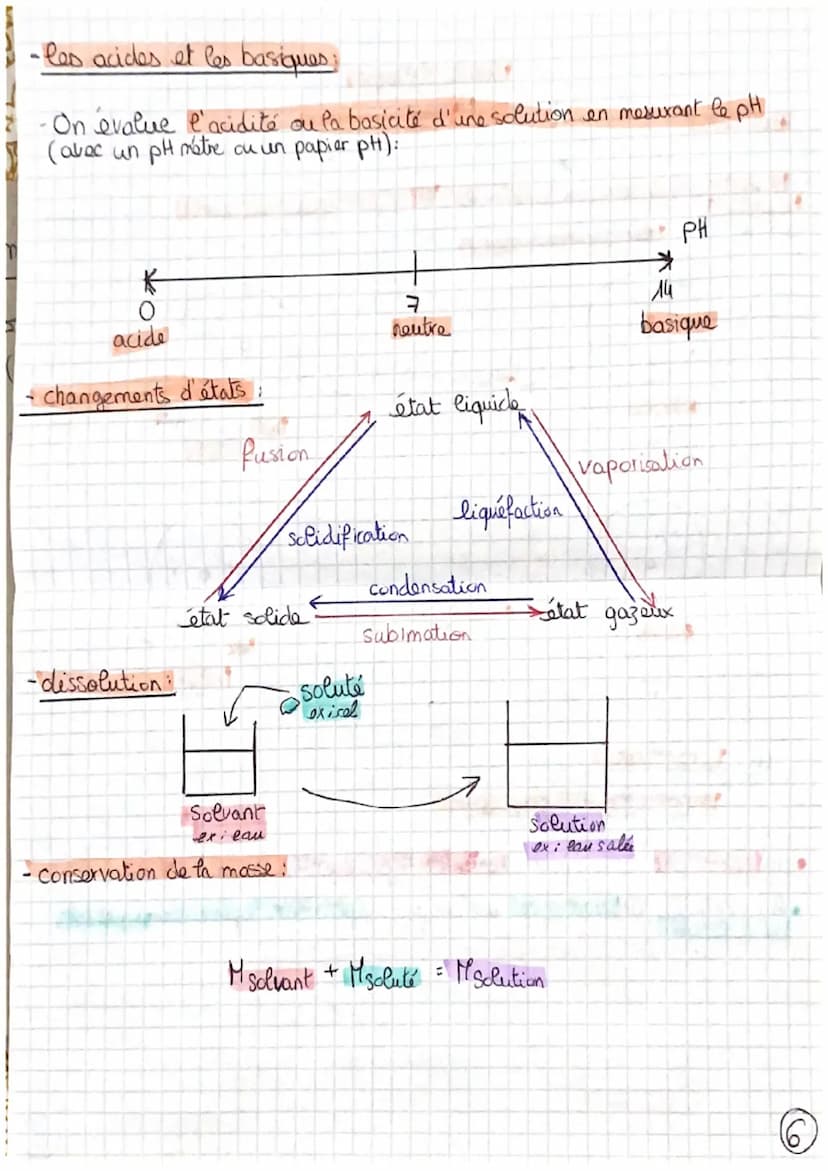 - les acides et les basiques :
- On évalue l'acidité ou la basicité d'une solution en mesurant le pH
(avec un pH mètre ou un papier pH) :
PH
0
7
14
acide
neutre
basique
- changements d'états :
état liquide
fusion
vaporisation
liquéfaction
solidification
condensation
état solide
état gazeux
sublimation
- dissolution :
soluté
ex : sel
Solvant
ex : eau
Solution
ex : eau salée
- conservation de la masse :
M solvant + M soluté = M solution
6